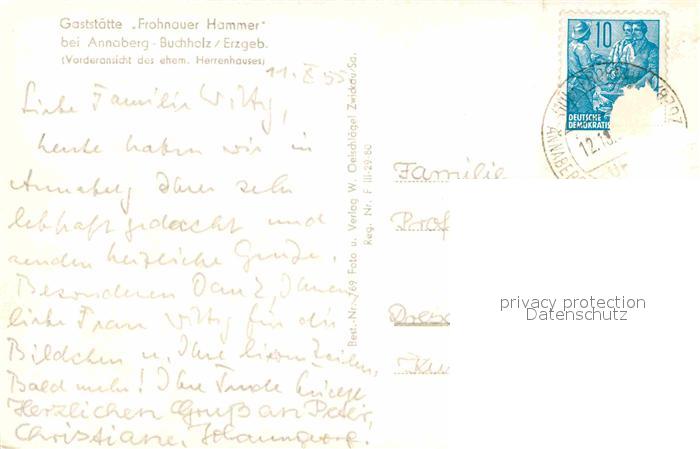 Gaststätte „Frohnauer Hammer"
bei Annaberg-Buchholz/Erzgeb.
(Vorderansicht des ehem. Herrenhauses)
11. X 55
Liebe Familie Wittig,
heute haben wir in
Annaberg Ihrer sehr
lebhaft gedacht und
senden herzliche Grüße.
Besonderen Dank, Ihnen
liebe Frau Wittig für die
Bildchen u. Ihre lieben Zeilen,
Bald mehr! Ihre
Herzlichen Gruß an Peter,
Christiane,
Best.-Nr. 769 Foto u. Verlag W. Oelschlägel Zwickau/Sa.
Reg. Nr. F III-29-80
10
DEUTSCHE
DEMOKRATIS
12.10.
Familie
Prof
privacy protection
Datenschutz